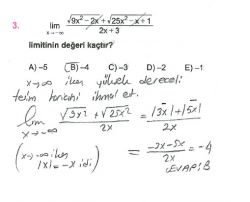 3. lim x→-∞ (√9x² - 2x + √25x² - x + 1) / (2x + 3)
limitinin değeri kaçtır?
A) -5 B) -4 C) -3 D) -2 E) -1
x→-∞ iken yüksek dereceli
terim haricini ihmal et.
lim x→-∞ (√3x² + √25x²) / 2x = (|3x| + |5x|) / 2x
(x→-∞ iken |x| = -x idi) = (-3x - 5x) / 2x = -4
CEVAP: B